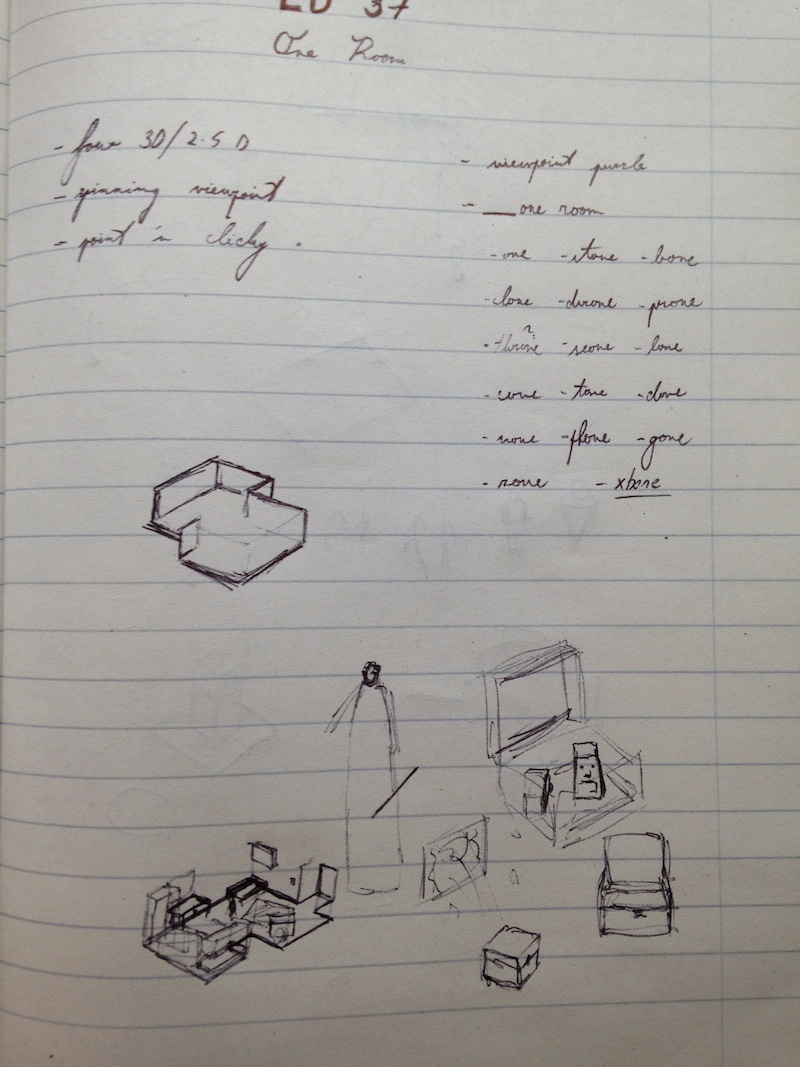 LD 37
One Room
- faux 3D/2.5 D
- spinning viewpoint
- point 'n clicky.
- viewpoint puzzle
- __one room
- one - stone - bone
- clone - drone - prone
- throne? - scone - lone
- cone - tone - done
- none - phone - gone
- xbone